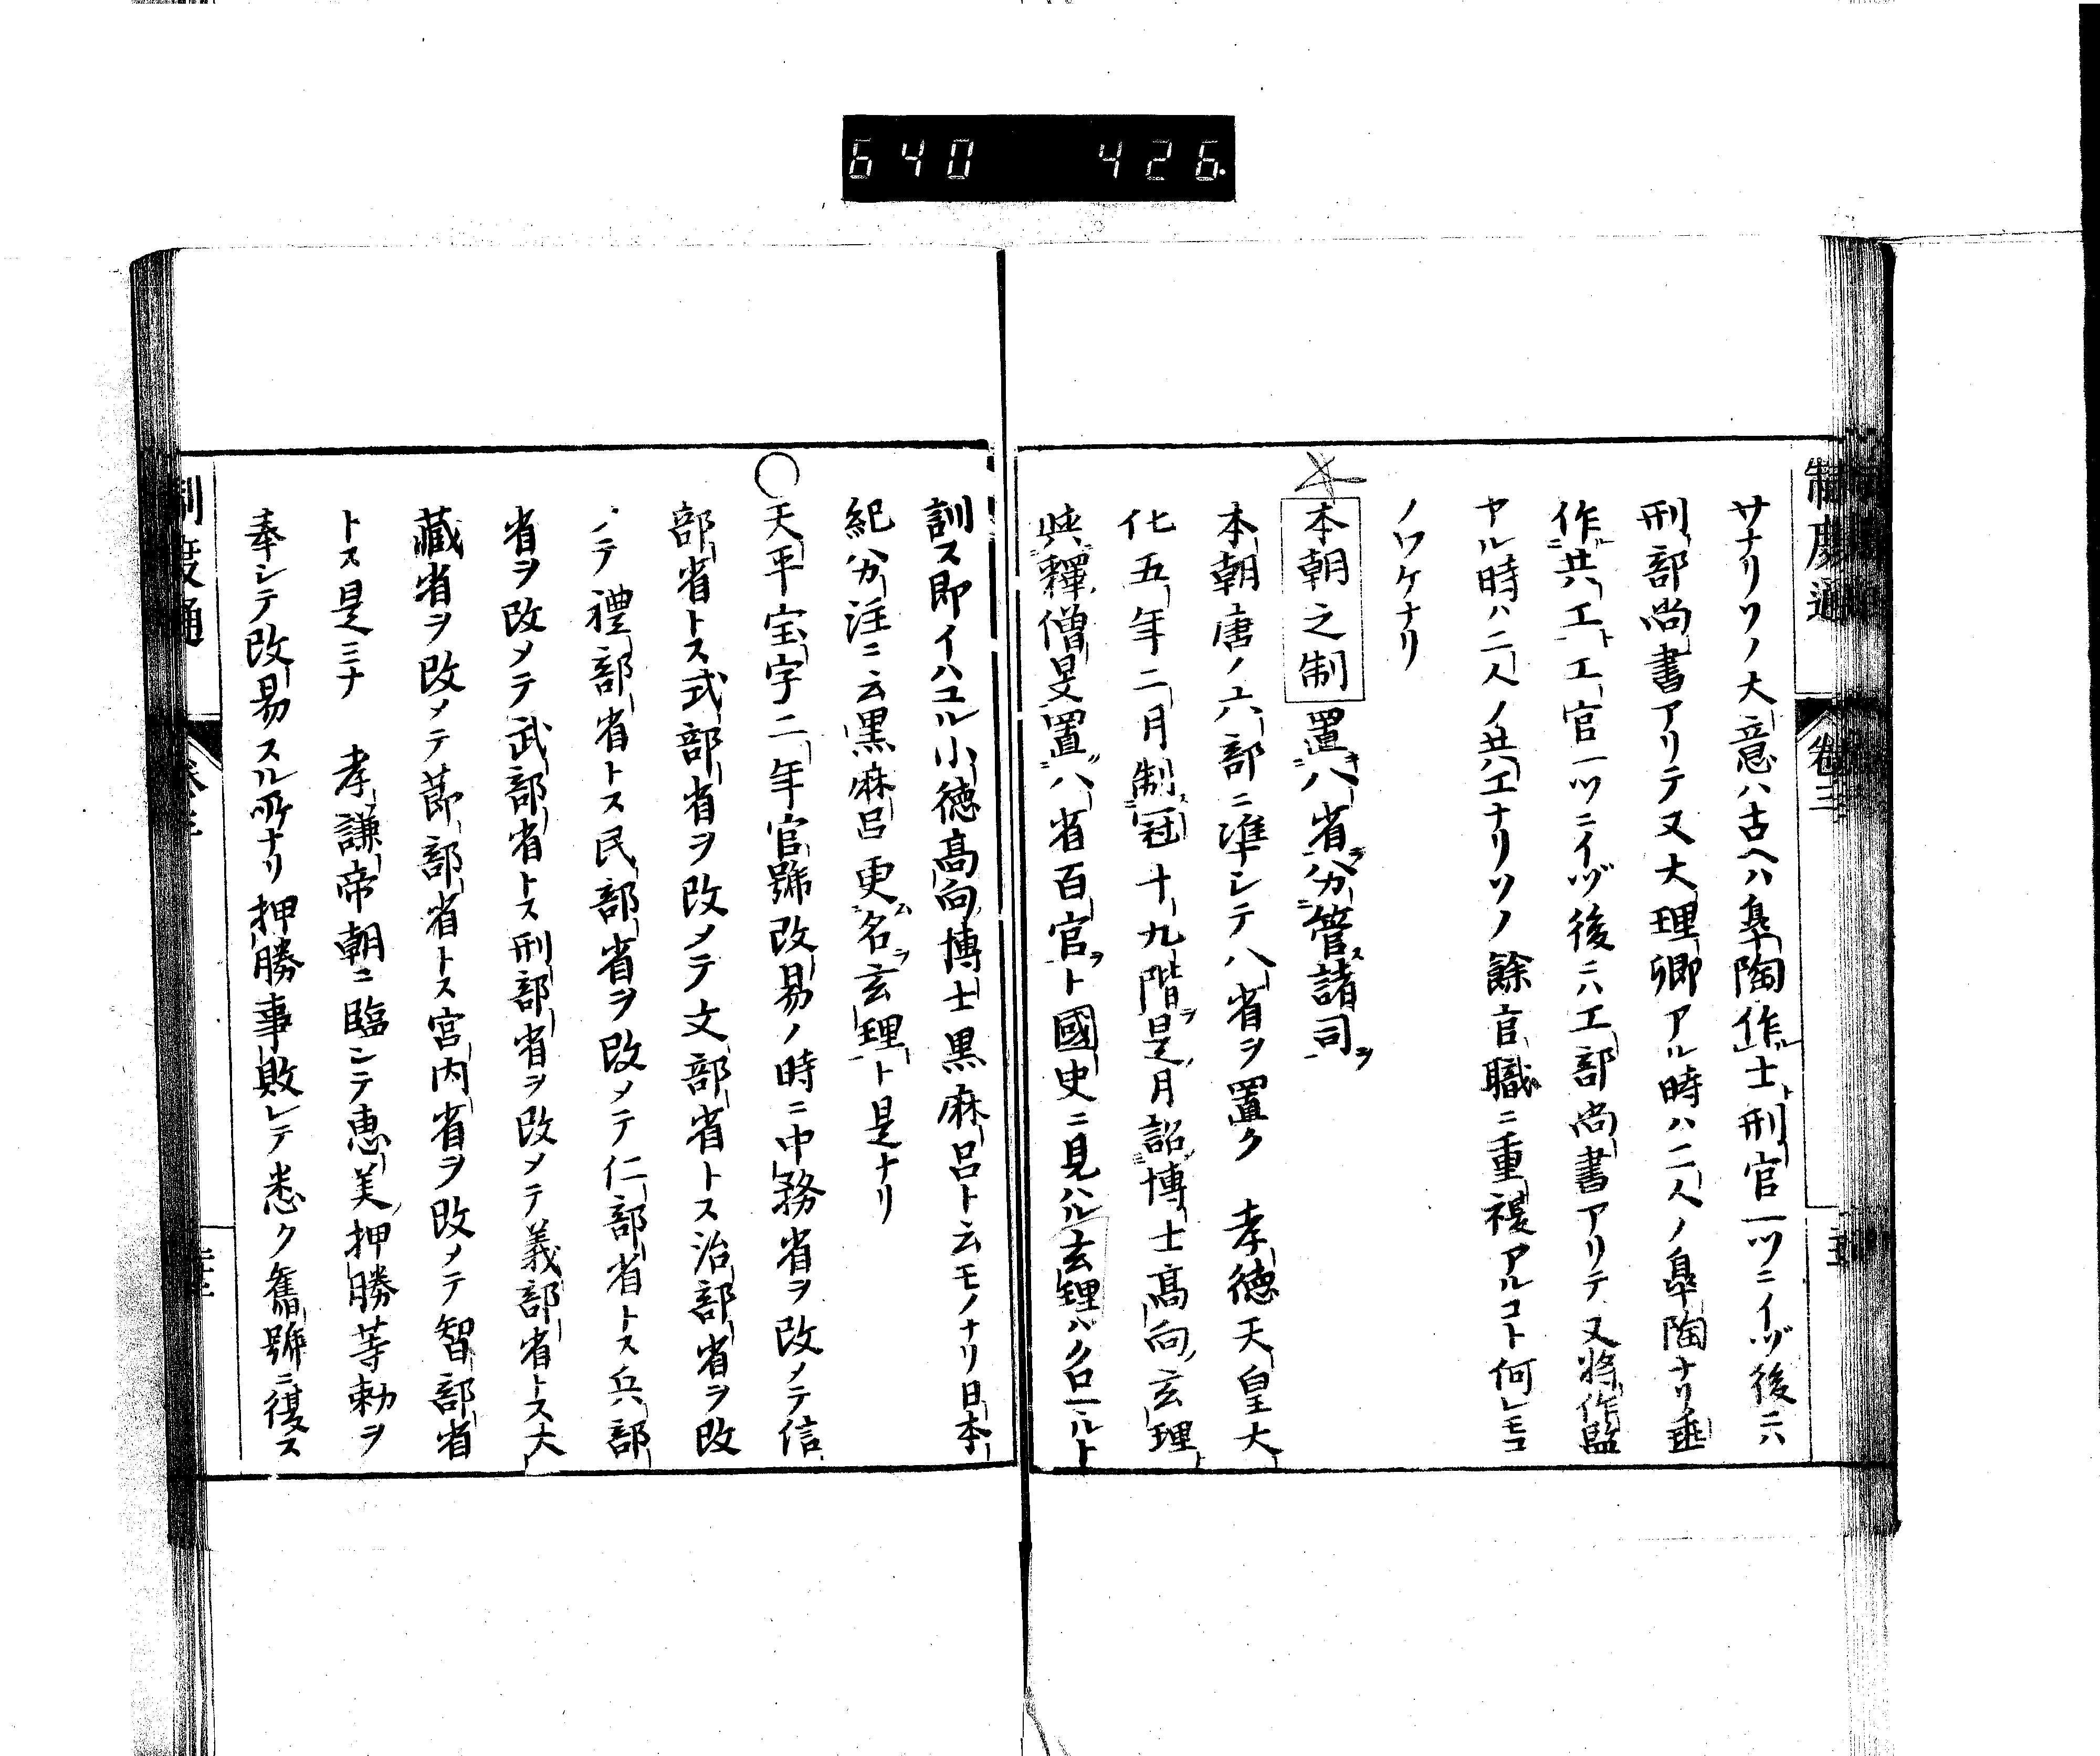 640 426.
制度通 卷三
サナリソノ大意ハ古ヘハ皐陶作士ト刑官一ツニイヅ後ニハ
刑部尚書アリテ又大理卿アル時ハ二人ノ皐陶ナリ垂
作共工ト工官一ツニイヅ後ニハ工部尚書アリテ又將作監
ヤル時ハ二人ノ共工ナリソノ餘官職ニ重複アルコト何レモコ
ノワケナリ
本朝之制 置八省分管諸司
本朝唐ノ六部ニ準シテ八省ヲ置ク 孝德天皇大
化五年二月制冠十九階ヲ是月詔博士高向玄理
與釋僧旻置八省百官ヲト國史ニ見ハル玄理ハクロマルト
訓ス即イハユル小德高向博士黒麻呂ト云モノナリ日本
紀分注ニ云黒麻呂更名玄理ト是ナリ
○天平宝字二年官號改易ノ時ニ中務省ヲ改メテ信
部省トス式部省ヲ改メテ文部省トス治部省ヲ改
メテ禮部省トス民部省ヲ改メテ仁部省トス兵部
省ヲ改メテ武部省トス刑部省ヲ改メテ義部省トス大
藏省ヲ改メテ節部省トス宮内省ヲ改メテ智部省
トス是ミナ 孝謙帝朝ニ臨シテ惠美押勝等勅ヲ
奉シテ改易スル所ナリ押勝事敗レテ悉ク舊號ニ復ス
制度通 卷三